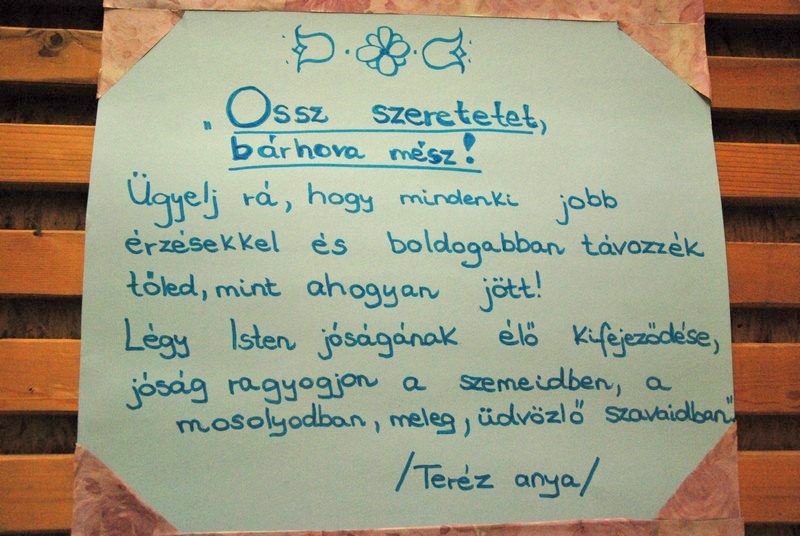 „Ossz szeretetet,
bárhova mész!
Ügyelj rá, hogy mindenki jobb
érzésekkel és boldogabban távozzék
tőled, mint ahogyan jött!
Légy Isten jóságának élő kifejeződése,
jóság ragyogjon a szemeidben, a
mosolyodban, meleg, üdvözlő szavaidban"
/Teréz anya/